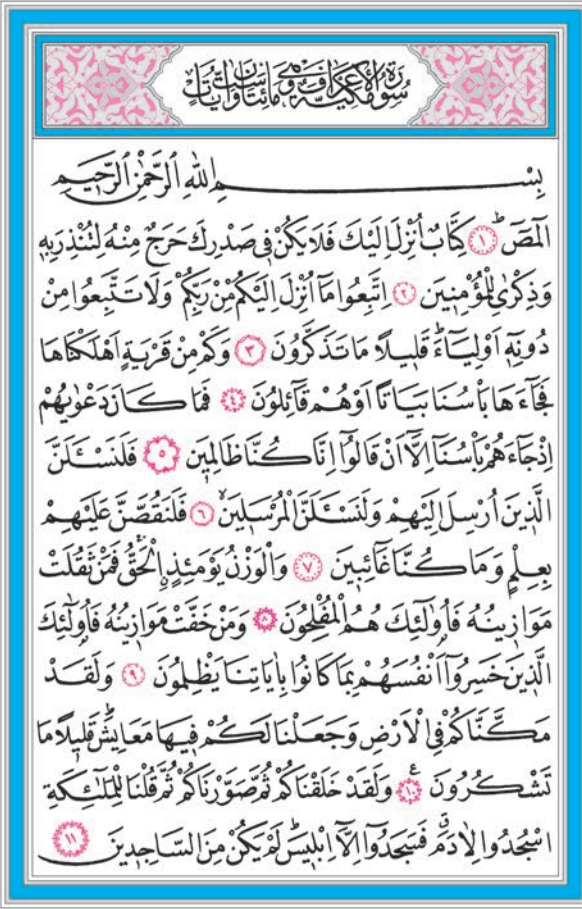 سُورَةُ الْاَعْرَافِ مَكِّيَّةٌ وَهِيَ مِائَتَانِ وَسِتُّ اٰيَاتٍ
بِسْمِ اللّٰهِ الرَّحْمٰنِ الرَّحِيمِ
الٓمٓصٓ ۜ ﴿١﴾ كِتَابٌ اُنْزِلَ اِلَيْكَ فَلَا يَكُنْ فِى صَدْرِكَ حَرَجٌ مِنْهُ لِتُنْذِرَ بِهِ
وَذِكْرٰى لِلْمُؤْمِنِينَ ﴿٢﴾ اِتَّبِعُوا مَٓا اُنْزِلَ اِلَيْكُمْ مِنْ رَبِّكُمْ وَلَا تَتَّبِعُوا مِنْ
دُونِهِٓ اَوْلِيَٓاءَۜ قَلِيلًا مَا تَذَكَّرُونَ ﴿٣﴾ وَكَمْ مِنْ قَرْيَةٍ اَهْلَكْنَاهَا
فَجَٓاءَهَا بَاْسُنَا بَيَاتًا اَوْ هُمْ قَٓائِلُونَ ﴿٤﴾ فَمَا كَانَ دَعْوٰيهُمْ
اِذْ جَٓاءَهُمْ بَاْسُنَٓا اِلَّٓا اَنْ قَالُٓوا اِنَّا كُنَّا ظَالِمِينَ ﴿٥﴾ فَلَنَسْـَٔلَنَّ
الَّذِينَ اُرْسِلَ اِلَيْهِمْ وَلَنَسْـَٔلَنَّ الْمُرْسَلِينَۙ ﴿٦﴾ فَلَنَقُصَّنَّ عَلَيْهِمْ
بِعِلْمٍ وَمَا كُنَّا غَٓائِبِينَ ﴿٧﴾ وَالْوَزْنُ يَوْمَئِذٍ اِۨلْحَقُّۚ فَمَنْ ثَقُلَتْ
مَوَازِينُهُ فَاُو۬لٰٓئِكَ هُمُ الْمُفْلِحُونَ ﴿٨﴾ وَمَنْ خَفَّتْ مَوَازِينُهُ فَاُو۬لٰٓئِكَ
الَّذِينَ خَسِرُٓوا اَنْفُسَهُمْ بِمَا كَانُوا بِاٰيَاتِنَا يَظْلِمُونَ ﴿٩﴾ وَلَقَدْ
مَكَّنَّاكُمْ فِى الْاَرْضِ وَجَعَلْنَا لَكُمْ فِيهَا مَعَايِشَۜ قَلِيلًا مَا
تَشْكُرُونَ۟ ﴿١٠﴾ وَلَقَدْ خَلَقْنَاكُمْ ثُمَّ صَوَّرْنَاكُمْ ثُمَّ قُلْنَا لِلْمَلٰٓئِكَةِ
اسْجُدُوا لِاٰدَمَۗ فَسَجَدُٓوا اِلَّٓا اِبْلِيسَۜ لَمْ يَكُنْ مِنَ السَّاجِدِينَ ﴿١١﴾